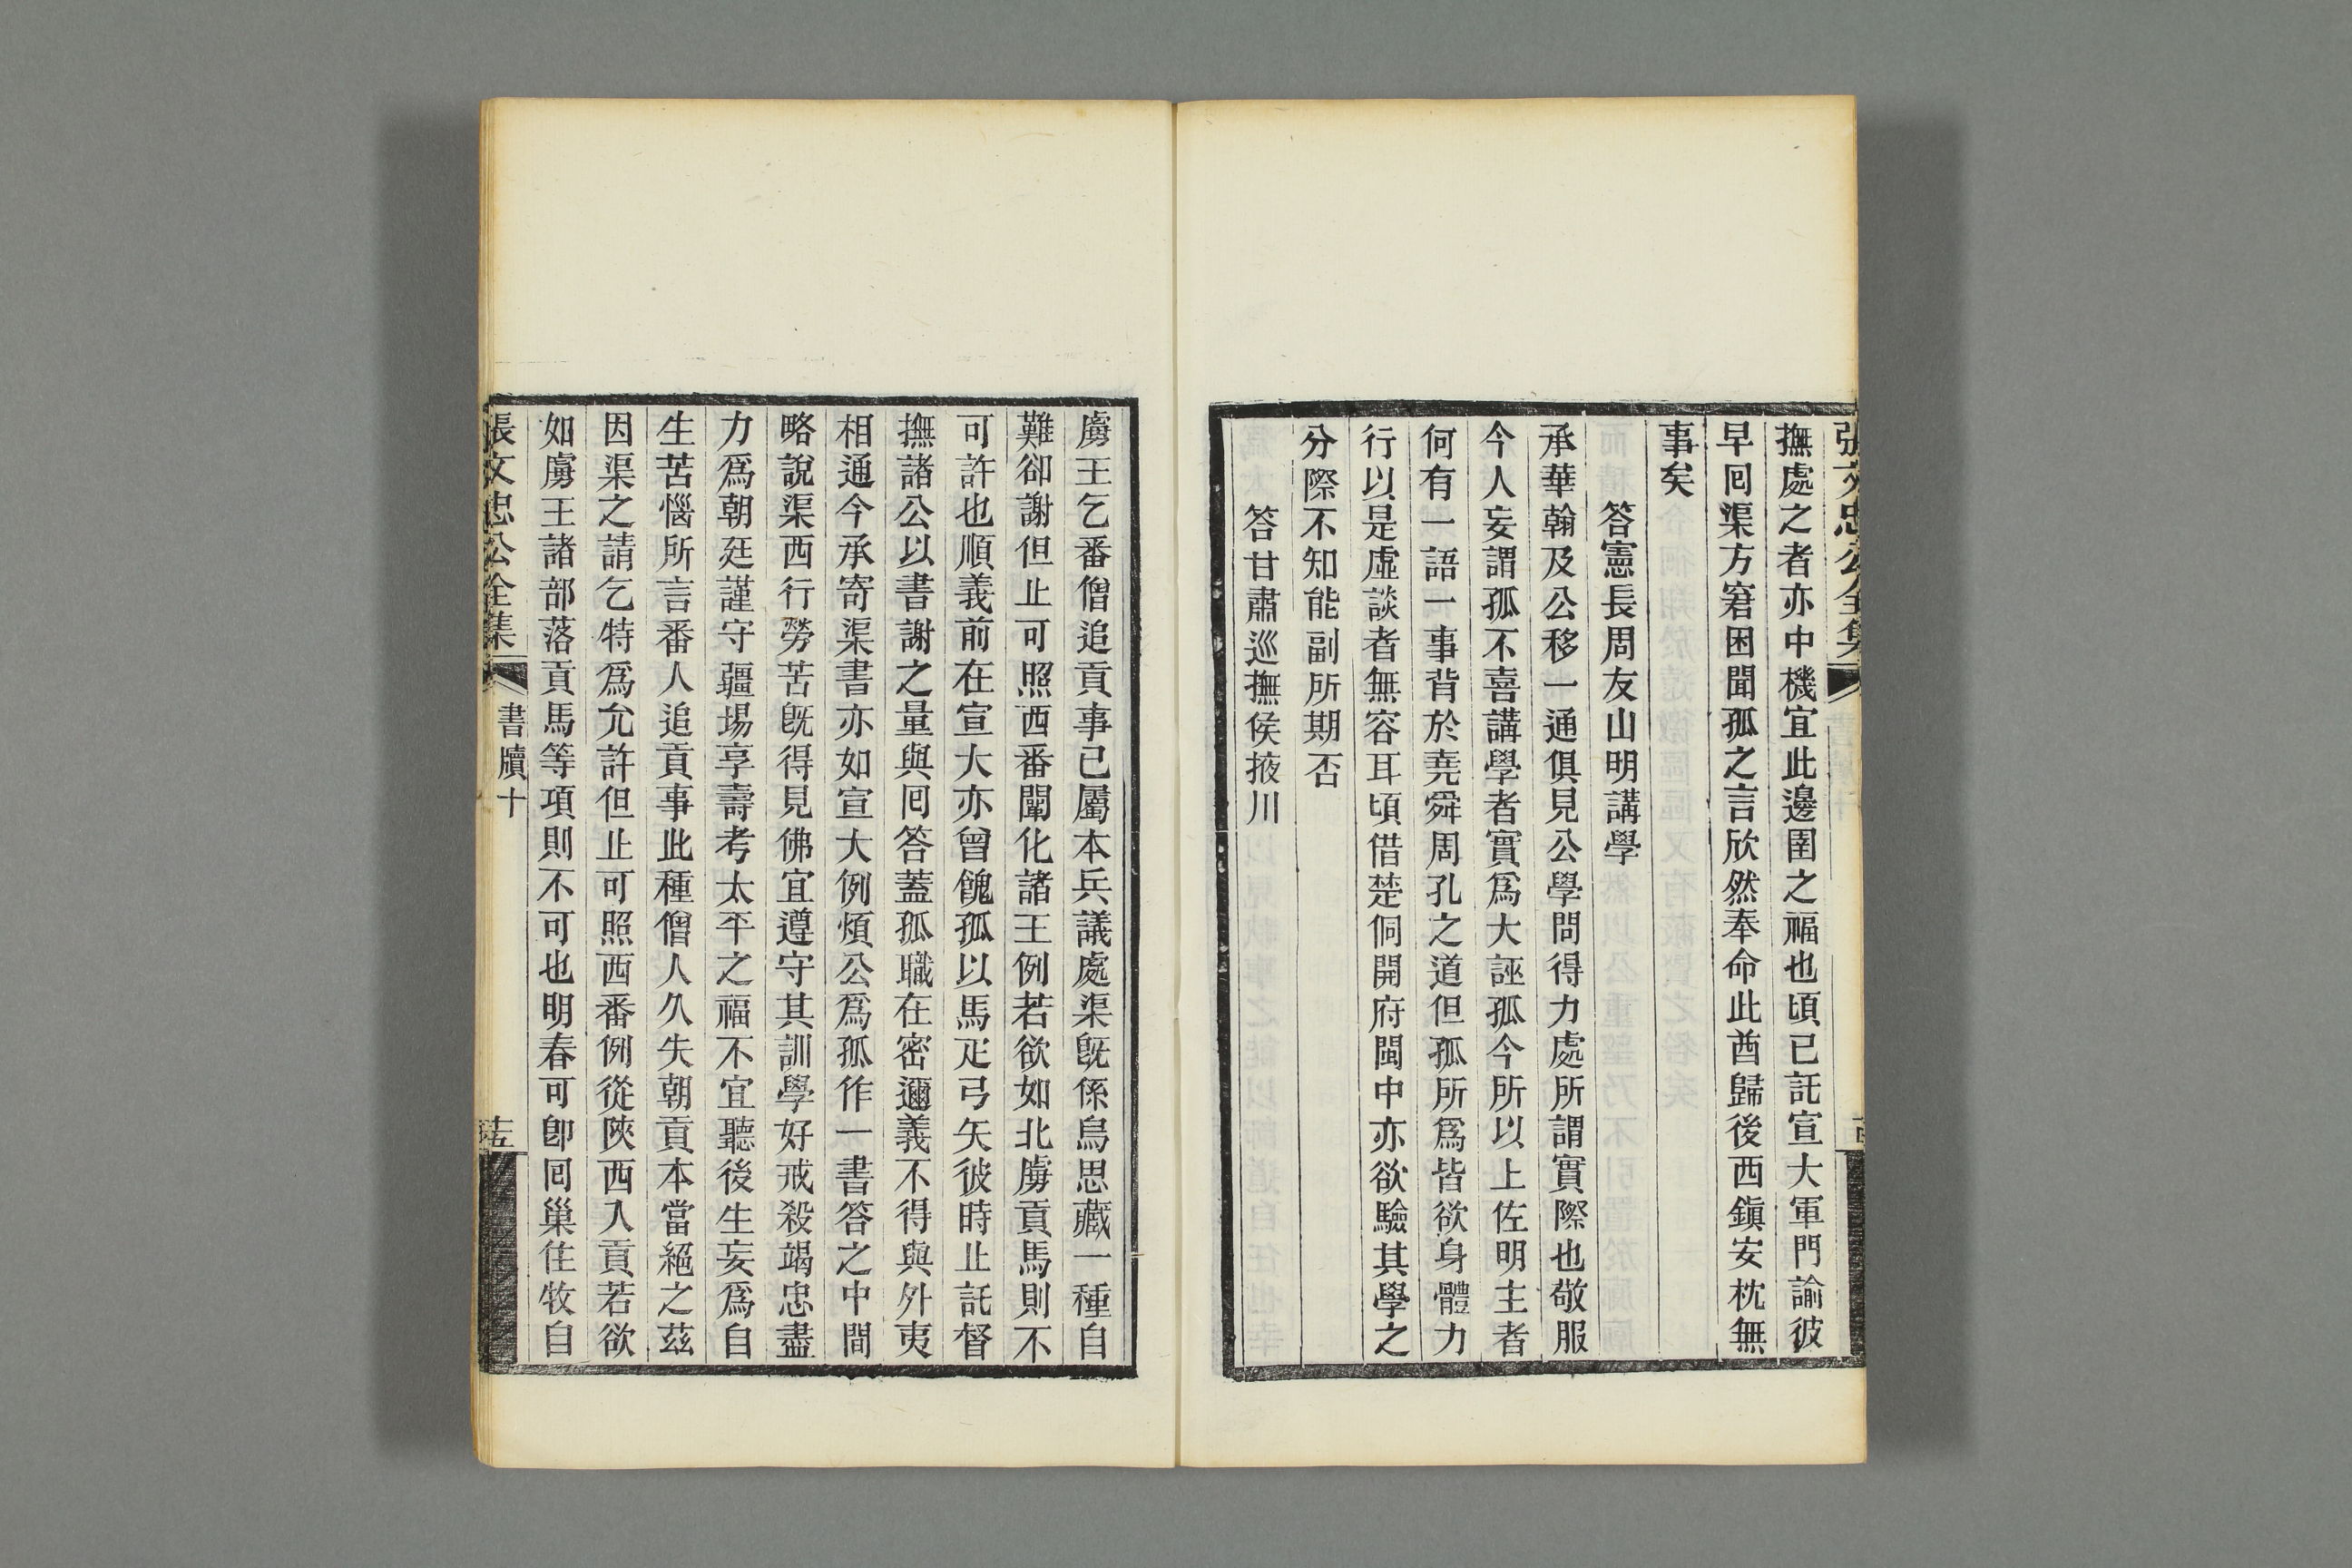 張文忠公全集
撫處之者亦中機宜此邊圉之福也頃已託宣大軍門諭彼
早囘渠方窘困聞孤之言欣然奉命此酋歸後西鎭安枕無
事矣
答憲長周友山明講學
承華翰及公移一通俱見公學問得力處所謂實際也敬服
今人妄謂孤不喜講學者實爲大誣孤今所以上佐明主者
何有一語一事背於堯舜周孔之道但孤所爲皆欲身體力
行以是虛談者無容耳頃借楚侗開府閩中亦欲驗其學之
分際不知能副所期否
答甘肅巡撫侯掖川
虜王乞番僧追貢事已屬本兵議處渠旣係烏思藏一種自
難卻謝但止可照西番闡化諸王例若欲如北虜貢馬則不
可許也順義前在宣大亦曾餽孤以馬疋弓矢彼時止託督
撫諸公以書謝之量與囘答蓋孤職在密邇義不得與外夷
相通今承寄渠書亦如宣大例煩公爲孤作一書答之中間
略說渠西行勞苦旣得見佛宜遵守其訓學好戒殺竭忠盡
力爲朝廷謹守疆場享壽考太平之福不宜聽後生妄爲自
生苦惱所言番人追貢事此種僧人久失朝貢本當絕之茲
因渠之請乞特爲允許但止可照西番例從陝西入貢若欲
如虜王諸部落貢馬等項則不可也明春可卽囘巢住牧自
張文忠公全集
書牘十